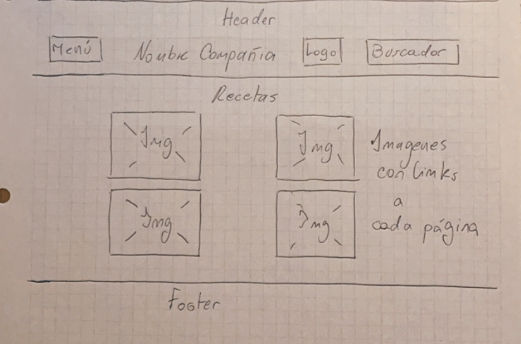 Header
Menú Nombre Compañia Logo Buscador
Recetas
Img Img
Imagenes
con links
a
cada página
Img Img
Footer